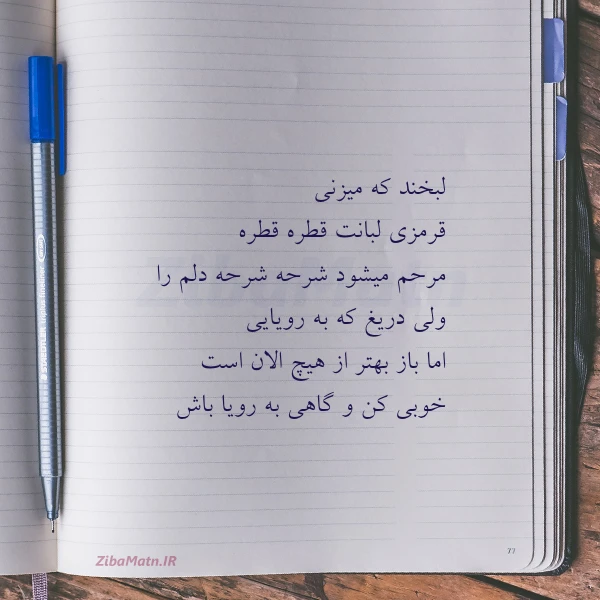 لبخند که میزنی
قرمزی لبانت قطره قطره
مرحم میشود شرحه شرحه دلم را
ولی دریغ که به رویایی
اما باز بهتر از هیچ الان است
خوبی کن و گاهی به رویا باش
77
ZibaMatn.IR